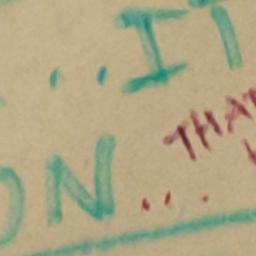 ...IT
ON...
THAT